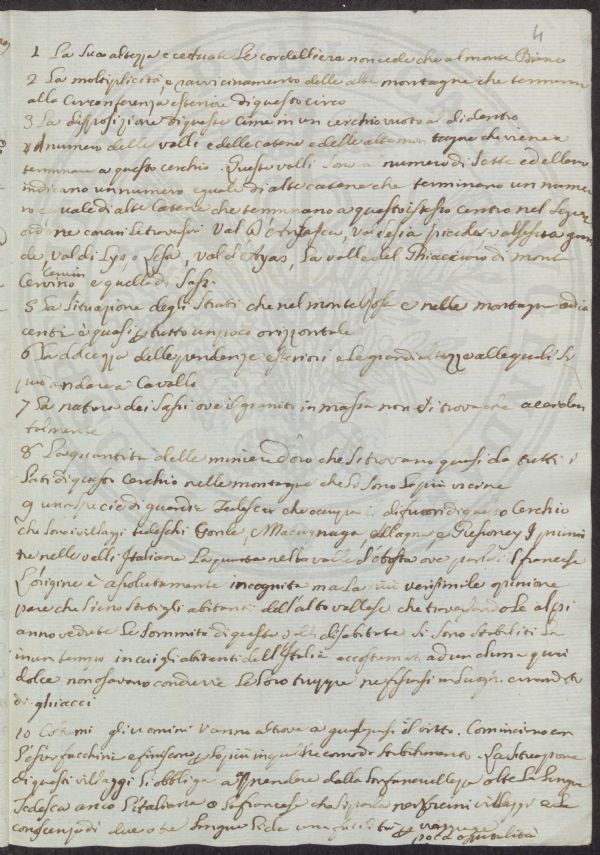 4
1 La Sua altezza eccettuate Le cordelliere non cede che al monte Bianc
2 La moltiplicità, e ravvicinamento delle alte montagne che terminan
alla Circonferenza esteriore di questo circo
3 La disposizione di queste Cime in un cerchio vuoto al di dentro
4 numero delle valli e delle catene e delle alte montagne che viene a
terminare a questo cerchio. Queste valli Sono a numero di Sette ed elleno
indicano un numero eguale di alte catene che terminano un nume
ro eguale di alte Catene che terminano a questo istesso centro nel Segue
ordine Val Anzasca, Val Sesia piccola val Sesia gran
de, val di Lys, o Lesa, val d'Ayas, La valle del Ghiacciaio di monte
Cervin
Cervino, e quella di Sass.
5 La Situazione degli Strati che nel monte Rosa e nelle montagne adia
centi è quasi per tutto un poco orizzontale
6 La dolcezza delle pendenze esteriori e le grandi altezze alle quali Si
può andare a Cavallo
7 La natura dei Sassi ove il granito in massa non si trova che accidan
talmente
8 La quantità delle miniere d'oro che Si trovano quasi da tutti i
Lati di questo Cerchio nelle montagne che Si Sono Le più vicine
9 una specie di guardie Tedesca che occupa i di fuori di questo Cerchio
che Sono villaggi tedeschi Macugnaga, Allagna, e Gressoney I primi
tre nelle valli Italiane La quarta nella valle d'Aosta ove parla il francese
L'origine è assolutamente incognita ma La più verisimile opinione
pare che Sieno Stati gli abitanti dell'alto vallese che traversando Le alpi
anno vedute Le Sommità di queste valli disabitate Si Sono Stabiliti La
in un tempo in cui gli abitanti dell'Italia accostumati ad un clima più
dolce non osavano condurre Le Loro truppe ne fissarsi in Luoghi circondati
di ghiacci
10 Costumi gli uomini vanno altrove a il vitto. Cominciano con
L'esser facchini e finiscono stabilimento. La Situazione
di questi villaggi Li obbliga a apprendere dalla Loro fanciullezza oltre La Lingua
Tedesca anco L'italiana o La francese che Si parla nei vicini villaggi e La
conoscenza di due o tre Lingue Le da una facilità per
poca ospitalità